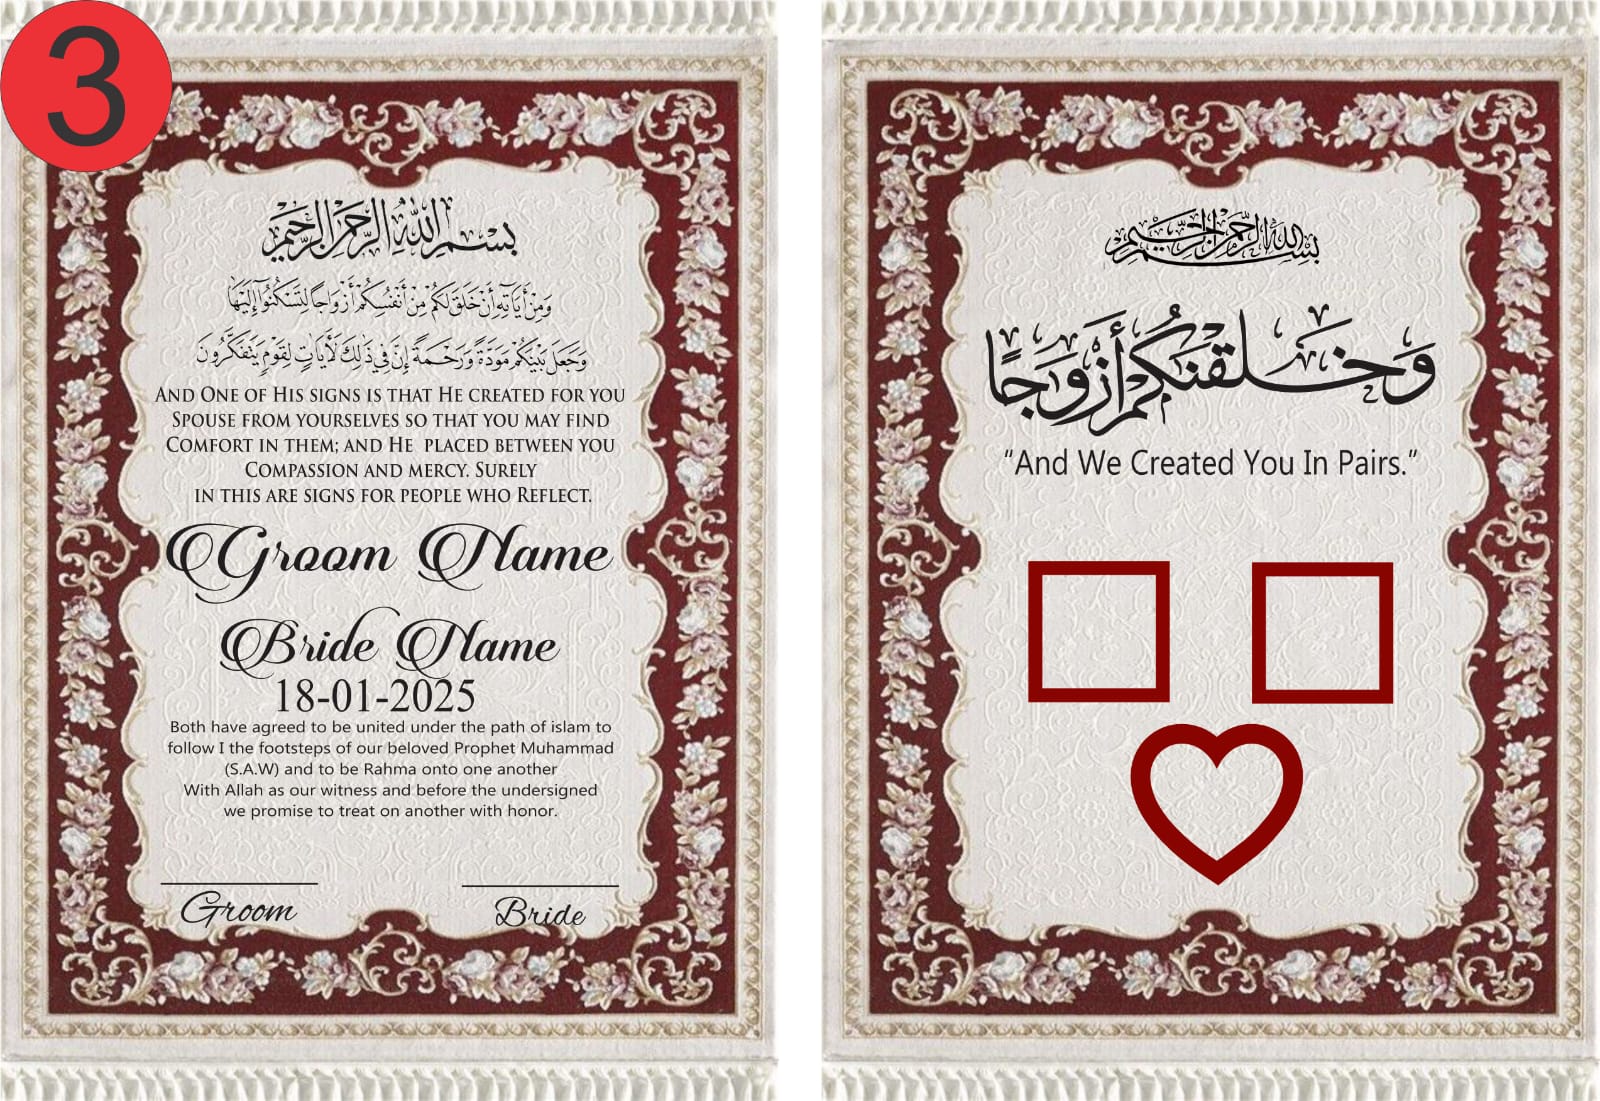 3
بسم الله الرحمن الرحيم
وَمِنْ آيَاتِهِ أَنْ خَلَقَ لَكُم مِّنْ أَنفُسِكُمْ أَزْوَاجًا لِّتَسْكُنُوا إِلَيْهَا
وَجَعَلَ بَيْنَكُم مَّوَدَّةً وَرَحْمَةً إِنَّ فِي ذَٰلِكَ لَآيَاتٍ لِّقَوْمٍ يَتَفَكَّرُونَ
AND ONE OF HIS SIGNS IS THAT HE CREATED FOR YOU
SPOUSE FROM YOURSELVES SO THAT YOU MAY FIND
COMFORT IN THEM; AND HE PLACED BETWEEN YOU
COMPASSION AND MERCY. SURELY
IN THIS ARE SIGNS FOR PEOPLE WHO REFLECT.
Groom Name
Bride Name
18-01-2025
Both have agreed to be united under the path of islam to
follow I the footsteps of our beloved Prophet Muhammad
(S.A.W) and to be Rahma onto one another
With Allah as our witness and before the undersigned
we promise to treat on another with honor.
Groom
Bride
بسم الله الرحمن الرحيم
وَخَلَقْنَكُمْ أَزْوَجًا
“And We Created You In Pairs.”